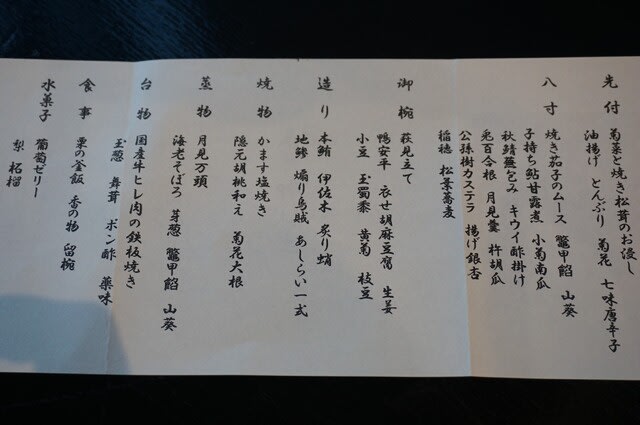 先付
菊菜と焼き松茸のお浸し
油揚げ とんぶり 菊花 七味唐辛子
八寸
焼き茄子のムース 鼈甲餡 山葵
子持ち鮎甘露煮 小菊南瓜
秋鯖蕪包み キウイ酢掛け
兎百合根 月見羹 杵胡瓜
公孫樹カステラ 揚げ銀杏
稲穂 松葉蕎麦
御椀
萩見立て
鴨安平 衣せ胡麻豆腐 生姜
小豆 玉蜀黍 黄菊 枝豆
造り
本鮪 伊佐木 炙り蛸
地鰺 煽り烏賊 あしらい一式
焼物
かます塩焼き
隠元胡桃和え 菊花大根
蒸物
月見万頭
海老そぼろ 芽葱 鼈甲餡 山葵
台物
国産牛ヒレ肉の鉄板焼き
玉葱 舞茸 ポン酢 薬味
食事
栗の釜飯 香の物 留椀
水菓子
葡萄ゼリー
梨 柘榴